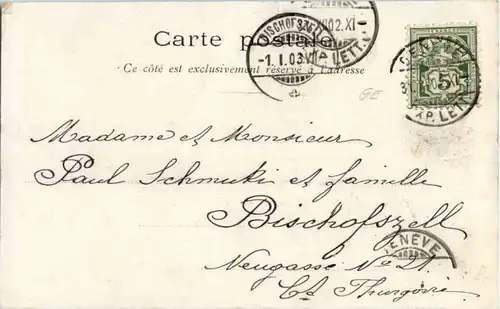 Carte postale
Ce côté est exclusivement réservé à l'adresse
BISCHOFSZELL
-1.I.03.VI
1902.XI
EXP. LETT.
GENÈVE
EXP. LETT.
5
GE
Madame et Monsieur
Paul Schmuki et famille
Bischofszell
GENÈVE
Neugasse No 21.
Ct Thurgovie